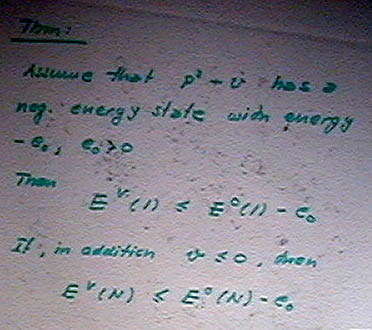 Thm:
Assume that p² + v has a
neg. energy state with energy
- e₀, e₀ > 0
Then
E^v(1) ≤ E^0(1) - e₀
If, in addition v ≤ 0, then
E^v(N) ≤ E^0(N) - e₀